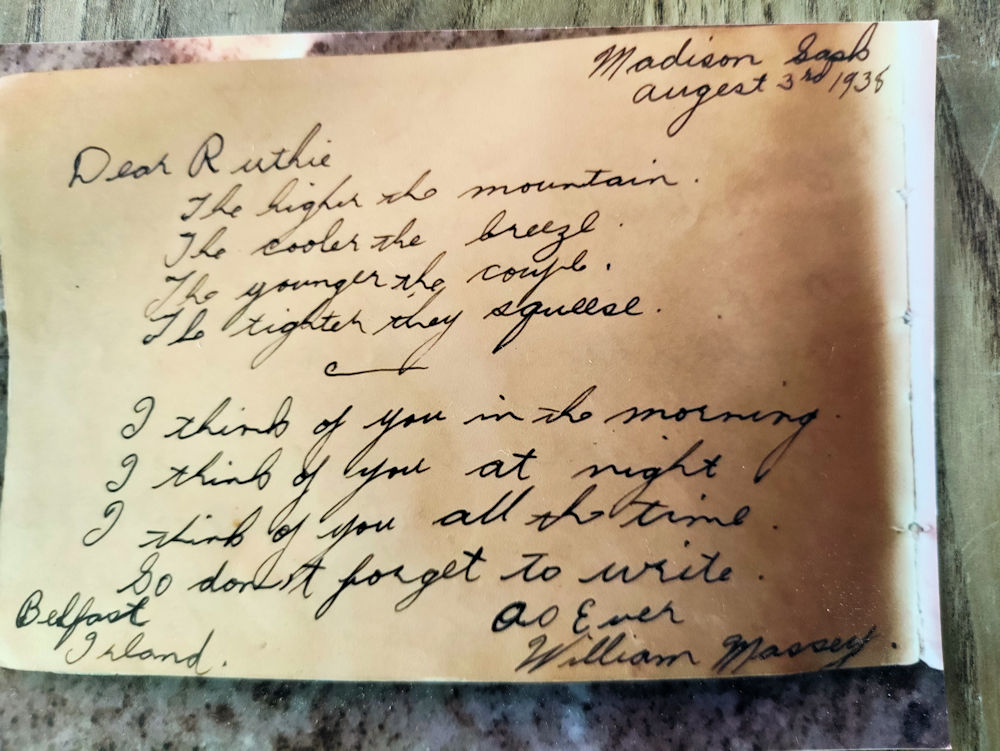 Madison Sask
augest 3rd 1938
Dear Ruthie
The higher the mountain.
The cooler the breeze.
The younger the couple.
The tighter they squeese.
I think of you in the morning.
I think of you at night
I think of you all the time.
So don't forget to write.
Belfast
Irland.
As Ever
William Massey.